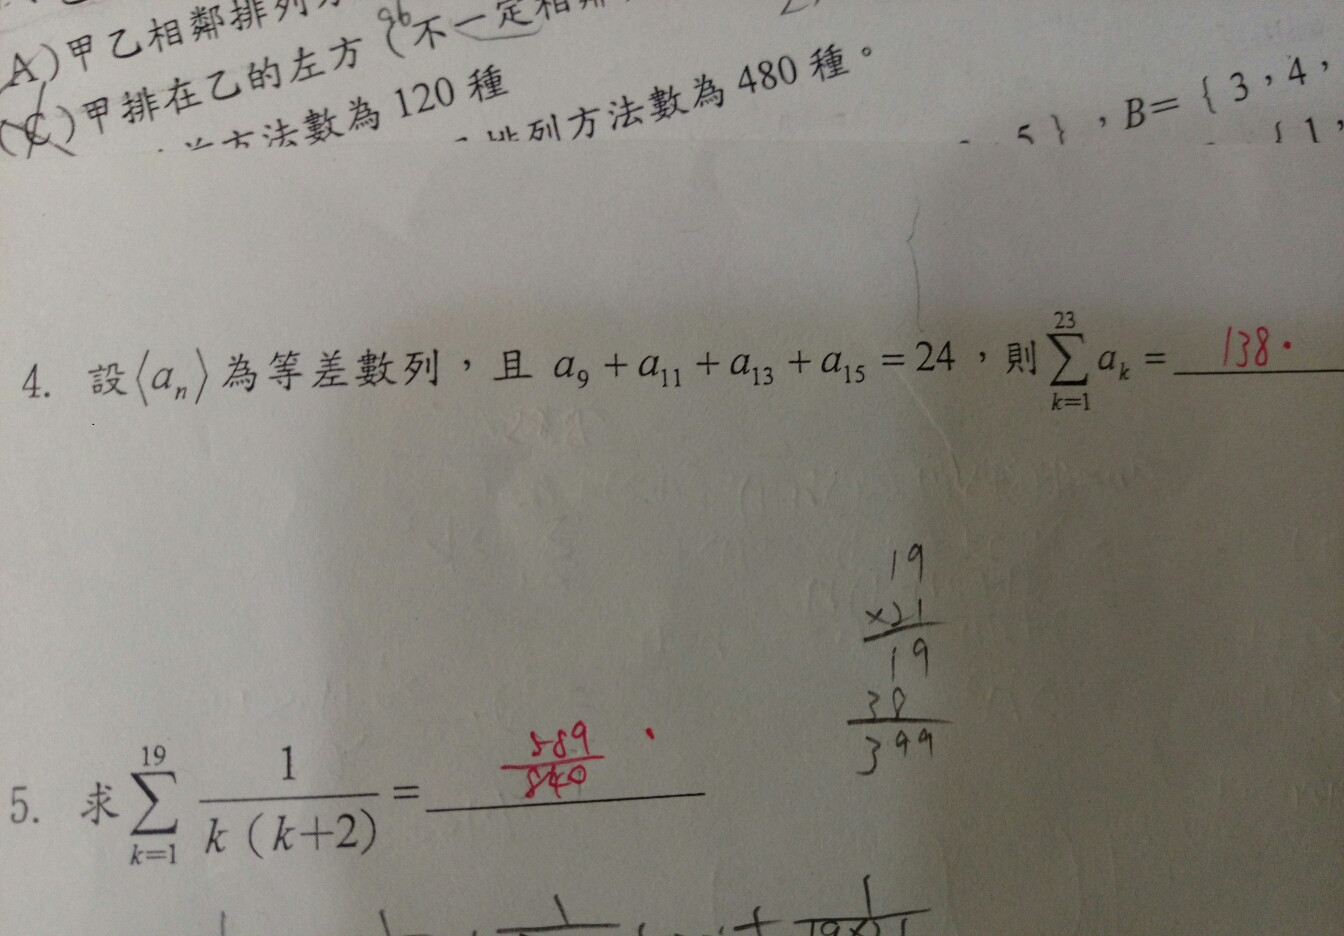 A)甲乙相鄰排列
(C)甲排在乙的左方(不一定相鄰
96
方法數為 120 種
排列方法數為 480 種。
5},B={3,4,
{1,
4. 設⟨aₙ⟩為等差數列,且 a₉+a₁₁+a₁₃+a₁₅=24,則∑_{k=1}^{23} aₖ= 138.
19
×21
19
38
399
5. 求∑_{k=1}^{19} 1/(k(k+2))= 589/840
+ 1/(19×21